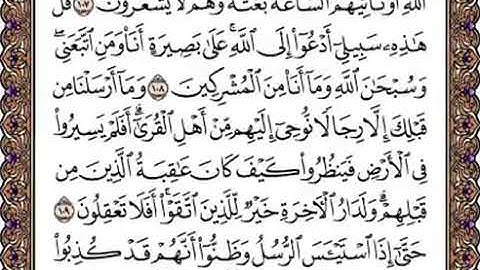 اللَّهِ أَوْ تَأْتِيَهُمُ السَّاعَةُ بَغْتَةً وَهُمْ لَا يَشْعُرُونَ ١٠٧ قُلْ
هَٰذِهِۦ سَبِيلِىٓ أَدْعُوٓا۟ إِلَى اللَّهِ ۚ عَلَىٰ بَصِيرَةٍ أَنَا۠ وَمَنِ اتَّبَعَنِى ۖ
وَسُبْحَٰنَ اللَّهِ وَمَآ أَنَا۠ مِنَ الْمُشْرِكِينَ ١٠٨ وَمَآ أَرْسَلْنَا مِن
قَبْلِكَ إِلَّا رِجَالًا نُّوحِىٓ إِلَيْهِم مِّنْ أَهْلِ الْقُرَىٰٓ ۗ أَفَلَمْ يَسِيرُوا۟
فِى الْأَرْضِ فَيَنظُرُوا۟ كَيْفَ كَانَ عَٰقِبَةُ الَّذِينَ مِن
قَبْلِهِمْ ۗ وَلَدَارُ الْءَاخِرَةِ خَيْرٌ لِّلَّذِينَ اتَّقَوْا۟ ۗ أَفَلَا تَعْقِلُونَ ١٠٩
حَتَّىٰٓ إِذَا اسْتَيْـَٔسَ الرُّسُلُ وَظَنُّوٓا۟ أَنَّهُمْ قَدْ كُذِبُوا۟